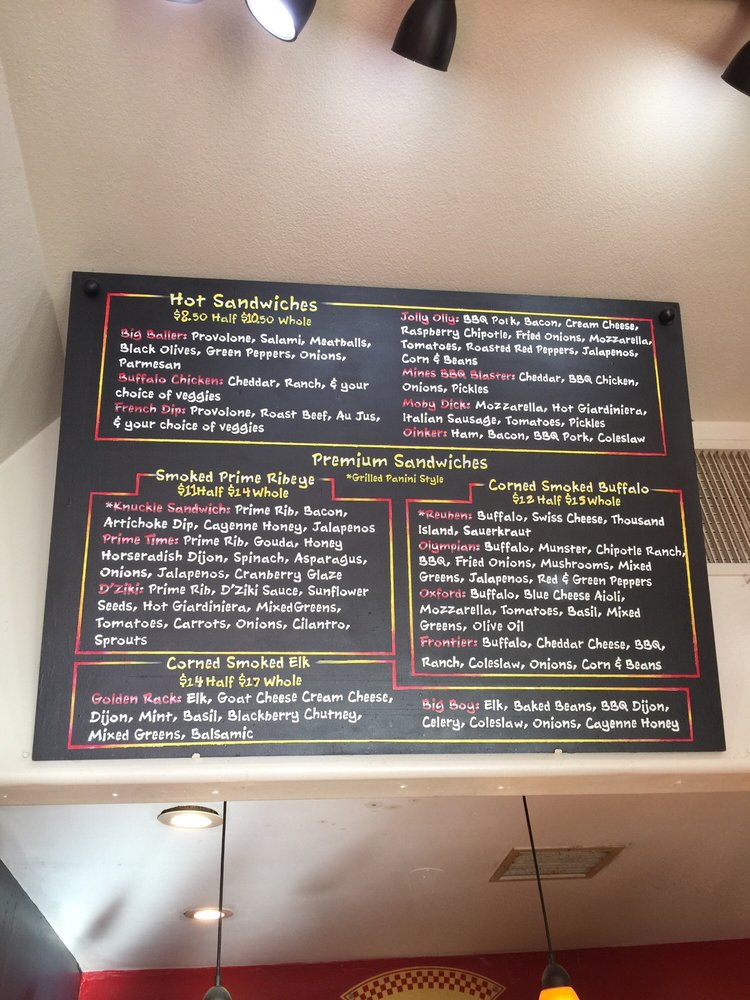 Hot Sandwiches
$8.50 Half $10.50 Whole
Big Baller: Provolone, Salami, Meatballs,
Black Olives, Green Peppers, Onions,
Parmesan
Buffalo Chicken: Cheddar, Ranch, & your
choice of veggies
French Dip: Provolone, Roast Beef, Au Jus,
& your choice of veggies
Jolly Olly: BBQ Pork, Bacon, Cream Cheese,
Raspberry Chipotle, Fried Onions, Mozzarella,
Tomatoes, Roasted Red Peppers, Jalapenos,
Corn & Beans
Mines BBQ Blaster: Cheddar, BBQ Chicken,
Onions, Pickles
Moby Dick: Mozzarella, Hot Giardiniera,
Italian Sausage, Tomatoes, Pickles
Oinker: Ham, Bacon, BBQ Pork, Coleslaw
Premium Sandwiches
*Grilled Panini Style
Smoked Prime Ribeye
$11 Half $14 Whole
*Knuckle Sandwich: Prime Rib, Bacon,
Artichoke Dip, Cayenne Honey, Jalapenos
Prime Time: Prime Rib, Gouda, Honey
Horseradish Dijon, Spinach, Asparagus,
Onions, Jalapenos, Cranberry Glaze
D'Ziki: Prime Rib, D'Ziki Sauce, Sunflower
Seeds, Hot Giardiniera, Mixed Greens,
Tomatoes, Carrots, Onions, Cilantro,
Sprouts
Corned Smoked Buffalo
$12 Half $15 Whole
*Reuben: Buffalo, Swiss Cheese, Thousand
Island, Sauerkraut
Olympian: Buffalo, Munster, Chipotle Ranch,
BBQ, Fried Onions, Mushrooms, Mixed
Greens, Jalapenos, Red & Green Peppers
Oxford: Buffalo, Blue Cheese Aioli,
Mozzarella, Tomatoes, Basil, Mixed
Greens, Olive Oil
Frontier: Buffalo, Cheddar Cheese, BBQ,
Ranch, Coleslaw, Onions, Corn & Beans
Corned Smoked Elk
$14 Half $17 Whole
Golden Rack: Elk, Goat Cheese Cream Cheese,
Dijon, Mint, Basil, Blackberry Chutney,
Mixed Greens, Balsamic
Big Boy: Elk, Baked Beans, BBQ Dijon,
Celery, Coleslaw, Onions, Cayenne Honey